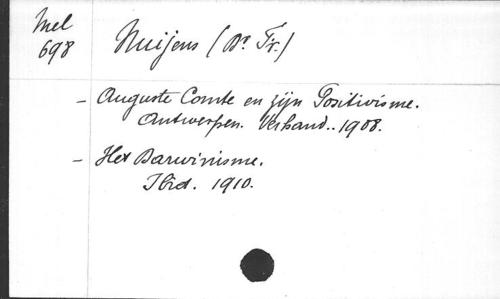 Mel
698
Nuijens (Dr. Fr.)
- Auguste Comte en zijn Positivisme.
Antwerpen. Verhand.. 1908.
- Het Darwinisme.
Ibid. 1910.